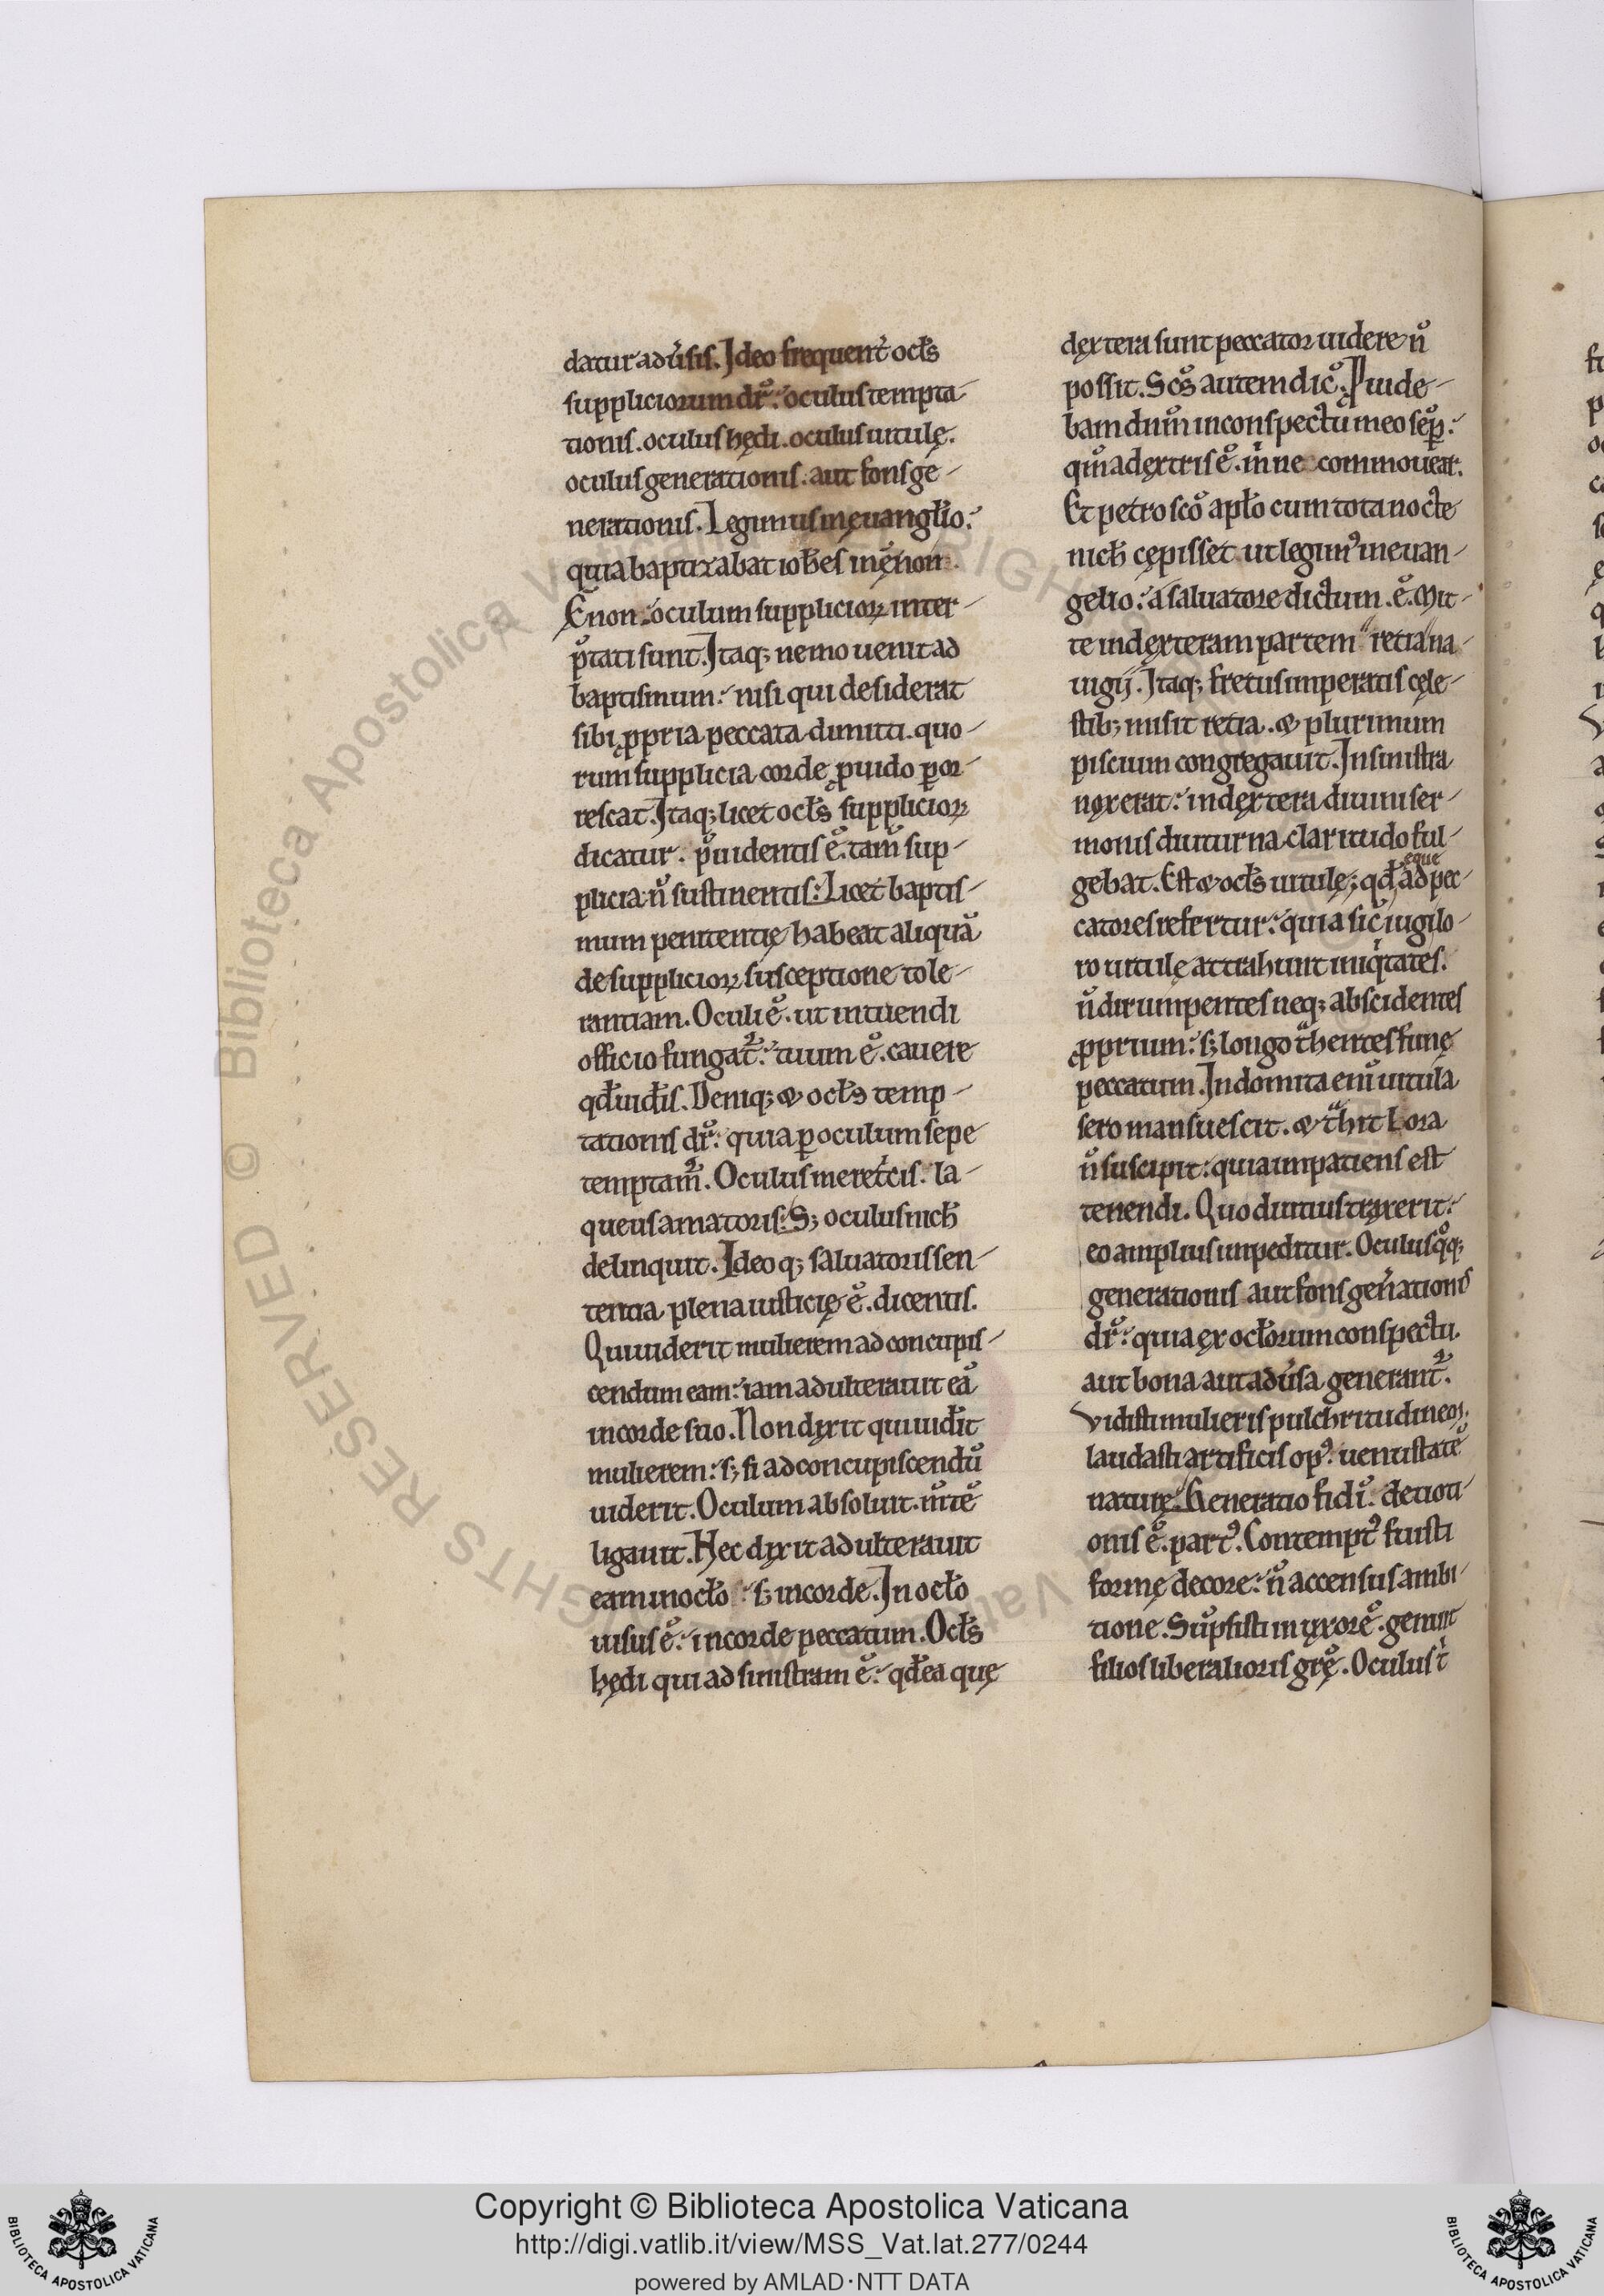 datur adu̓sis. Ideo frequent̓ ocl̄s
suppliciorum dr̄. oculus tempta-
tionis. oculus hędi. oculus uitulę.
oculus generationis. aut fons ge-
nerationis. Legimus ineuangl̄io.
quia baptizabat ioh̄es inęnon.
Ęnon. oculum supplicioꝝ inter-
p̄tati sunt. Itaq; nemo uenit ad
baptismum. nisi qui desiderat
sibi ꝓpria peccata dimitti. quo-
rum supplicia corde ꝓuido ꝑor-
rescat. Itaq; licet ocl̄s supplicioꝝ
dicatur. p̄uidentis ē. tam̄ sup-
plicia n̄ sustinentis. Licet baptis-
mum penitentię habeat aliquā
de supplicioꝝ susceptione tole-
rantiam. Oculi ē. ut intuendi
officio fungat᷑. tuum ē. cauere
qd̄ uid̄is. Deniq; & ocl̄s temp-
tationis dr̄. quia ꝑ oculum sepe
temptam᷑. Oculus meret̓cis. la-
queus amatoris. S; oculus nich̄
delinquit. Ideoq; saluatoris sen-
tentia plena iusticię ē. dicentis.
Qui uiderit mulierem ad concupis-
cendum eam. iam adulterauit eā
in corde suo. Non dyxit qui uid̄it
mulierem. s; si ad concupiscendū
uiderit. Oculum absoluit. m̄tē
ligauit. Nec dyxit adulterauit
eam in ocl̄o s; in corde. In ocl̄o
uisus ē. in corde peccatum. Ocl̄s
hędi qui ad sinistram ē. qd̄ ea quę
dęxtera sunt peccator uidere n̄
possit. Sc̄s autem dic̄. Puide-
bam dn̄m in conspectu meo sēꝑ.
qm̄ a dęxtris ē. m̄ ne commouear.
Et petro sc̄o apl̄o cum tota nocte
nich̄ cępisset ut legimꝰ in euan-
gelio. a saluatore dictum. ē. Mit-
te in dęxteram partem retia na-
uigij. Itaq; fretus imperatis cęle-
stib; misit retia. & plurimum
piscium congregauit. In sinistra
nox erat. in dęxtera diuini ser-
monis diuturna claritudo ful-
gebat. Est & ocl̄s uitulę; qd̄ ad pec-
eque
catores refertur. quia sic̄ iugi lo-
ro uitulę attrahunt iniq̓tates.
n̄ dirumpentes neq; abscidentes
ꝓprium. s; longo t̓hentes funę
peccatum. Indomita eni̅ uitula
sero mansuescit. & t̓hit Lora
n̄ suscipit. quia impatiens est
tenendi. Quo diutius tyxerit.
eo amplius impeditur. Oculus qq̄;
generationis aut fons gen̓ationis
dr̄. quia ęx ocl̄orum conspectu.
aut bona aut adu̓sa generant᷑.
Vidisti mulieris pulchritudineꝫ.
laudasti artificis opꝰ. uenustatē
naturę. Generatio fidi̅. deuoti-
onis ē. partꝰ. Contemptꝰ fuisti
formę decorę. n̄ accensus ambi-
tione. Sūpsisti in uxorē. genuit
filios liberalioris gr̄ę. Oculus t̓

Copyright © Biblioteca Apostolica Vaticana
http://digi.vatlib.it/view/MSS_Vat.lat.277/0244
powered by AMLAD·NTT DATA
BIBLIOTECA APOSTOLICA VATICANA
BIBLIOTECA APOSTOLICA VATICANA